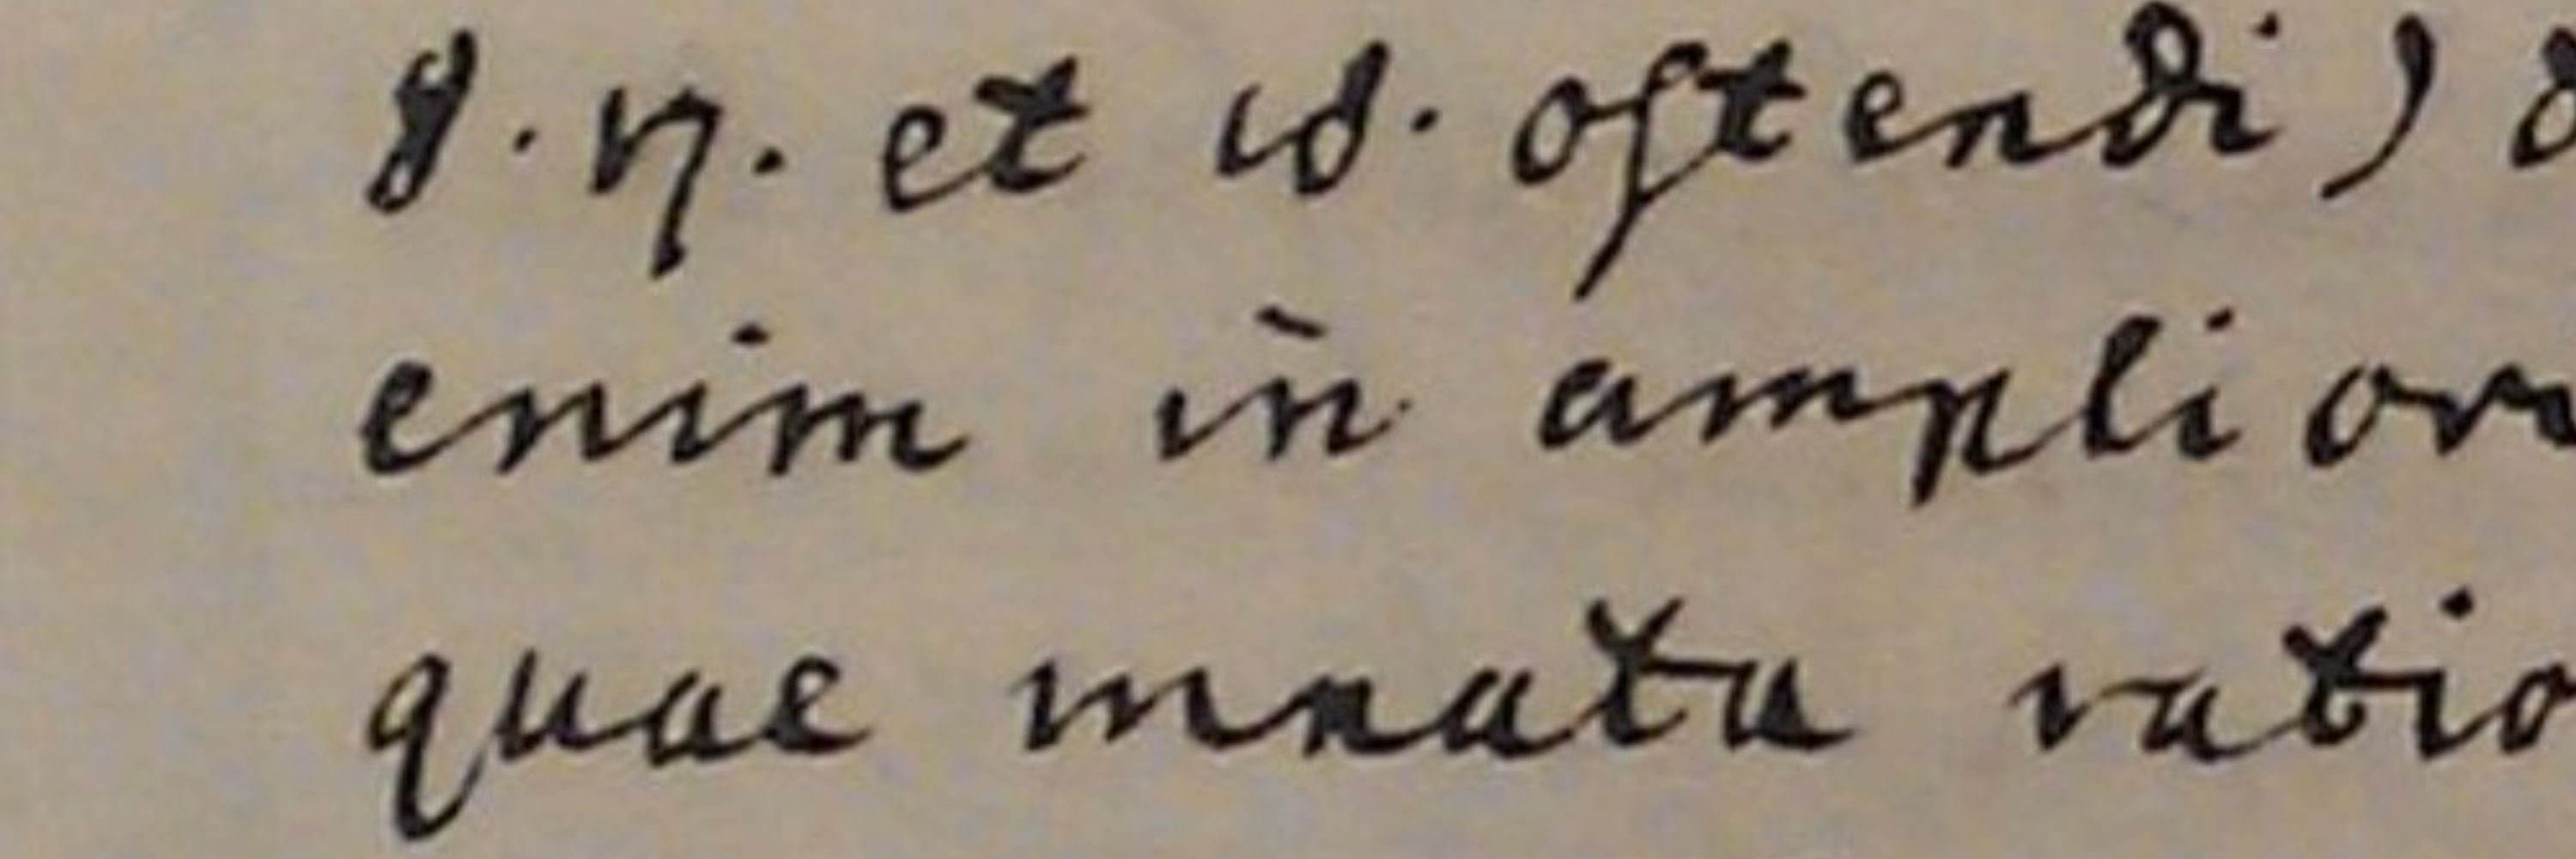 η. et ιδ. oſtendi)
enim in ampli or
quae innata ratio